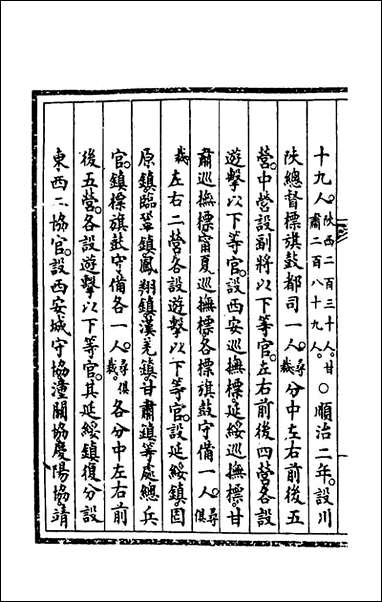 十九人。陜西二百三十人。甘肅二百八十九人。○順治二年。設川
陜總督標旗鼓都司一人。尋裁。分中左右前後五
營。中營設副將以下等官。左右前後四營各設
遊擊以下等官。設西安巡撫標延綏巡撫標。甘
肅巡撫標甯夏巡撫標各標旗鼓守備一人。尋俱
裁。左右二營各設遊擊以下等官。設延綏鎮。固
原鎮臨鞏鎮鳳翔鎮漢羌鎮甘肅鎮等處總兵
官。鎮標旗鼓守備各一人。尋俱裁。各分中左右前
後五營。各設遊擊以下等官。其延綏鎮復分設
東西二協官。設西安城守協潼關協慶陽協靖